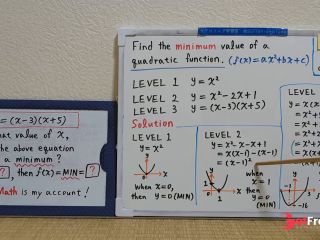 = (x-3)(x+5)
at value of x,
he above equation
a minimum ?
?, then f(x)=MIN= ?
Math is my account!
Find the minimum value of a
quadratic function. (f(x)=ax²+bx+c)
LEVEL 1 y=x²
LEVEL 2 y=x²-2x+1
LEVEL 3 y=(x-3)(x+5)
Solution
LEVEL 1
y=x²
y
x
0
when
x=0,
then y=0(MIN)
LEVEL 2
y=x²-x-x+1
=x(x-1)-(x-1)
=(x-1)²
y
1
0
1
x
when
x=1
then
y=0
(MIN)
LEVEL
y=(x
=x²+
=x²
=(x²
=(x+
y
-1
-16